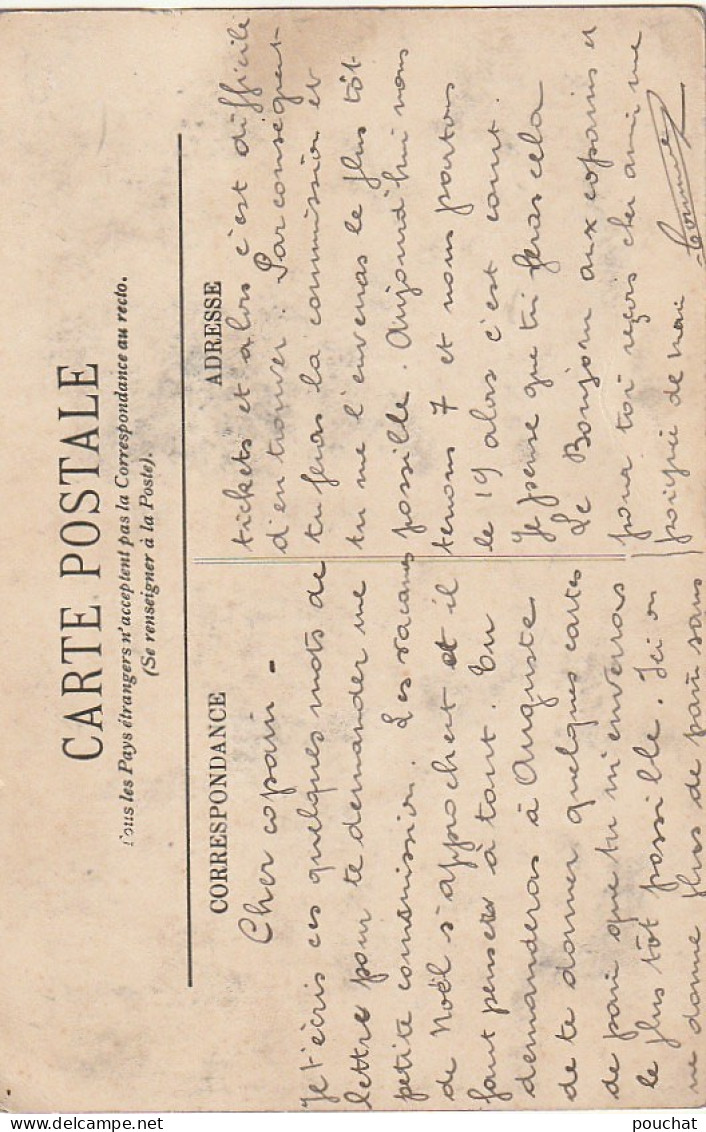 CARTE POSTALE
Tous les Pays étrangers n'acceptent pas la Correspondance au recto.
(Se renseigner à la Poste).
CORRESPONDANCE
Cher copain -
Je t'écris ces quelques mots de
lettre pour te demander une
petite commission. Les vacances
de Noël s'approchent et il
faut penser à tout. Tu
demanderas à Auguste
de te donner quelques cartes
de pain que tu m'enverras
le plus tôt possible. Ici on
ne donne plus de pain sans
ADRESSE
tickets et alors c'est difficile
d'en trouver. Par conséquent
tu feras la commission et
tu me l'enverras le plus tôt
possible. Aujourd'hui nous
tenons 7 et nous partons
le 19 alors c'est court.
Je pense que tu feras cela
Le Bonjour aux copains et
pour toi reçois cher ami une
poignée de main
pouchat